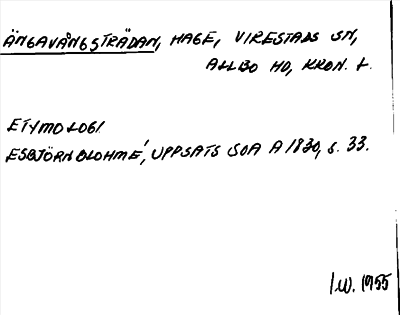 ÄNGAVÅNGSTRÄDAN, HAGE, VIRESTADS SN,
ALLBO HD, KRON. L.
ETYMOLOGI
ESBJÖRN BLOHMÉ, UPPSATS SOA A 1830, S. 33.
I.W. 1955